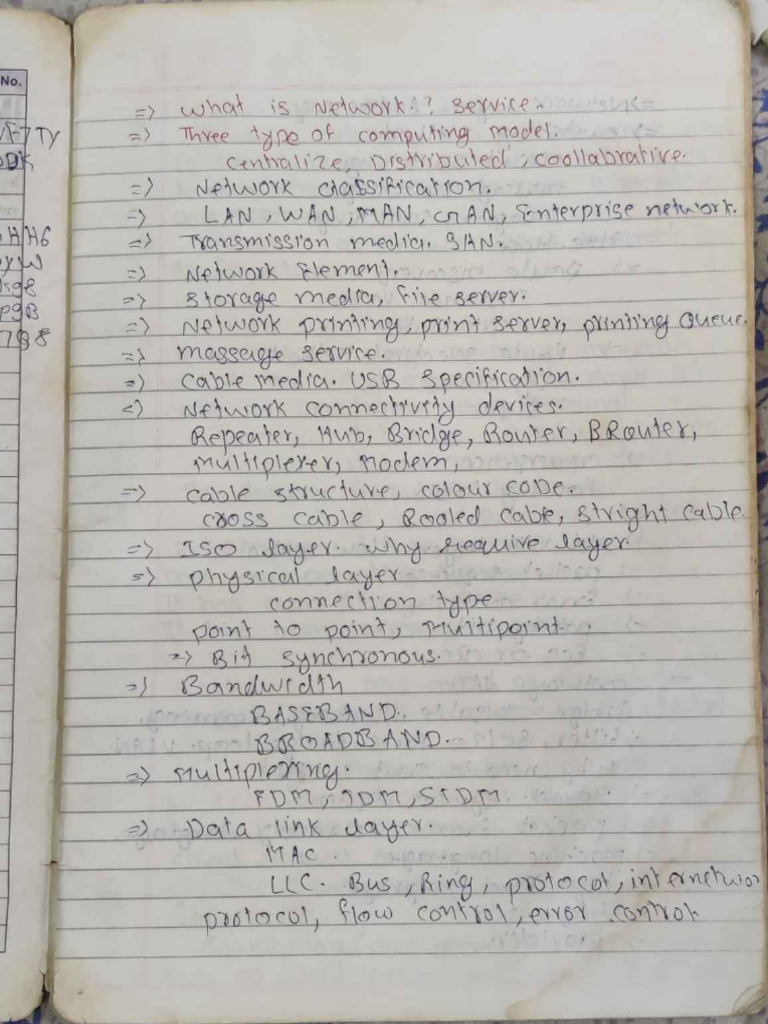 No.
=> What is Network.? Service.
=> Three type of computing model.
Centralize, Distributed, Coollabrative.
=> Network classification.
=> LAN, WAN, MAN, GAN, Enterprise network.
=> Transmission media. SAN.
=> Network Element.
=> Storage media, file server.
=> Network printing, print server, printing Queue.
=> Massage service.
=> Cable media. USB Specification.
=> Network connectivity devices.
Repeater, Hub, Bridge, Router, BRouter,
Multiplexer, Modem,
=> Cable structure, colour code.
Cross cable, Rooled Cable, Stright Cable.
=> ISO layer. Why require layer.
=> Physical layer
connection type
point to point, Multipoint.
=> Bit synchronous.
=> Bandwidth
BASEBAND.
BROADBAND.
=> Multiplexing.
FDM, TDM, STDM.
=> Data link layer.
MAC
LLC. Bus, Ring, protocol, internetwor
protocol, flow control, error control